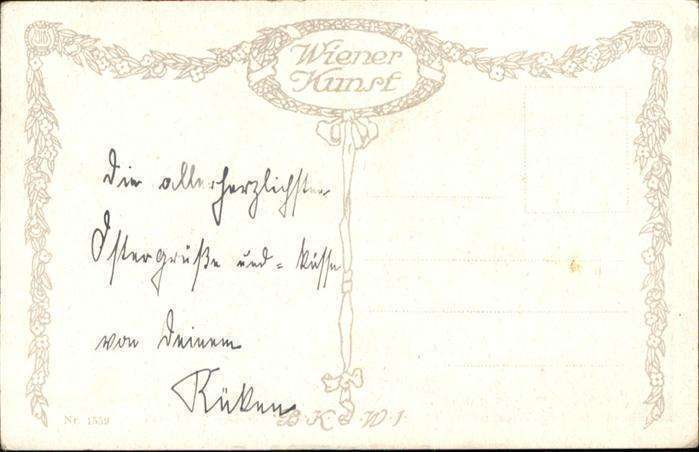 Wiener
Kunst
Die allerherzlichsten
Ostergrüße und = Küsse
von Deinem
Nr. 1559
B.K.W.I